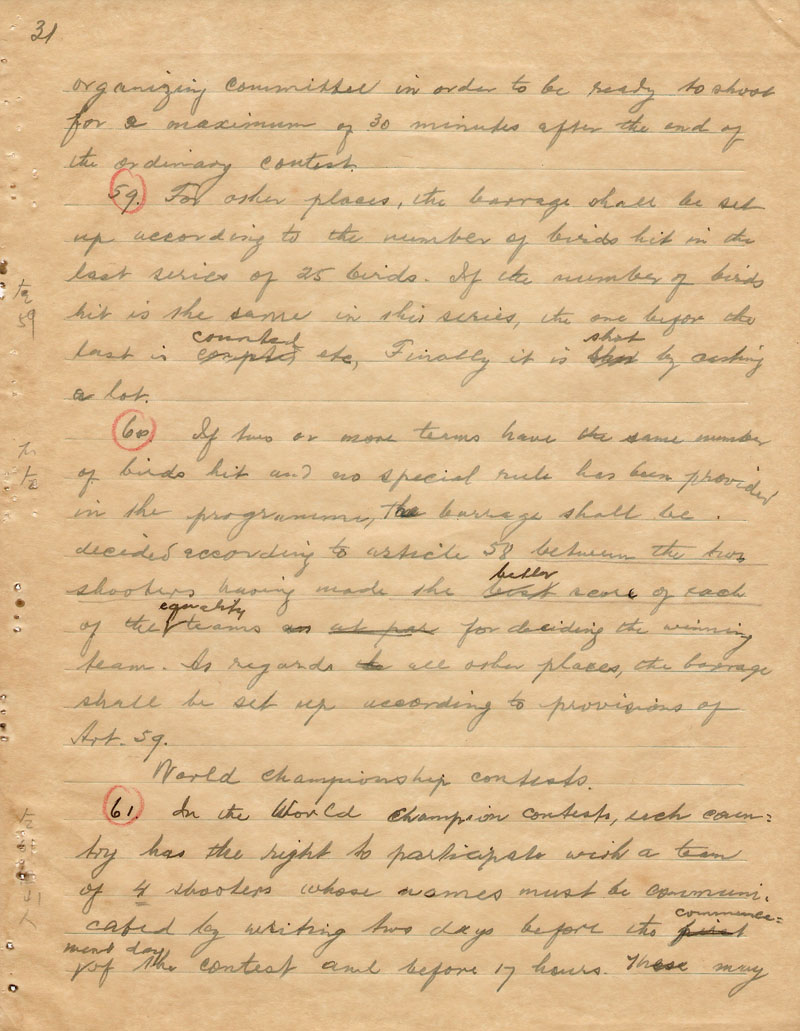 31
organizing committee in order to be ready to shoot
for a maximum of 30 minutes after the end of
the ordinary contest.
59. For other places, the barrage shall be set
up according to the number of birds hit in the
last series of 25 birds. If the number of birds
hit is the same in this series, the one before the
counted shot
last is etc, Finally it is by casting
a lot.
60. If two or more terms have the same number
of birds hit and no special rule has been provided
in the programme, the barrage shall be
decided according to article 58 between the two
better
shooters having made the best score of each
equality
of the teams as at par for deciding the winning
team. As regards to all other places, the barrage
shall be set up according to provisions of
Art. 59.
World championship contests.
61. In the World champion contests, each coun=
try has the right to participate with a team
of 4 shooters whose names must be communi=
commence=
cated by writing two days before the first
ment day
of the contest and before 17 hours. These may
59